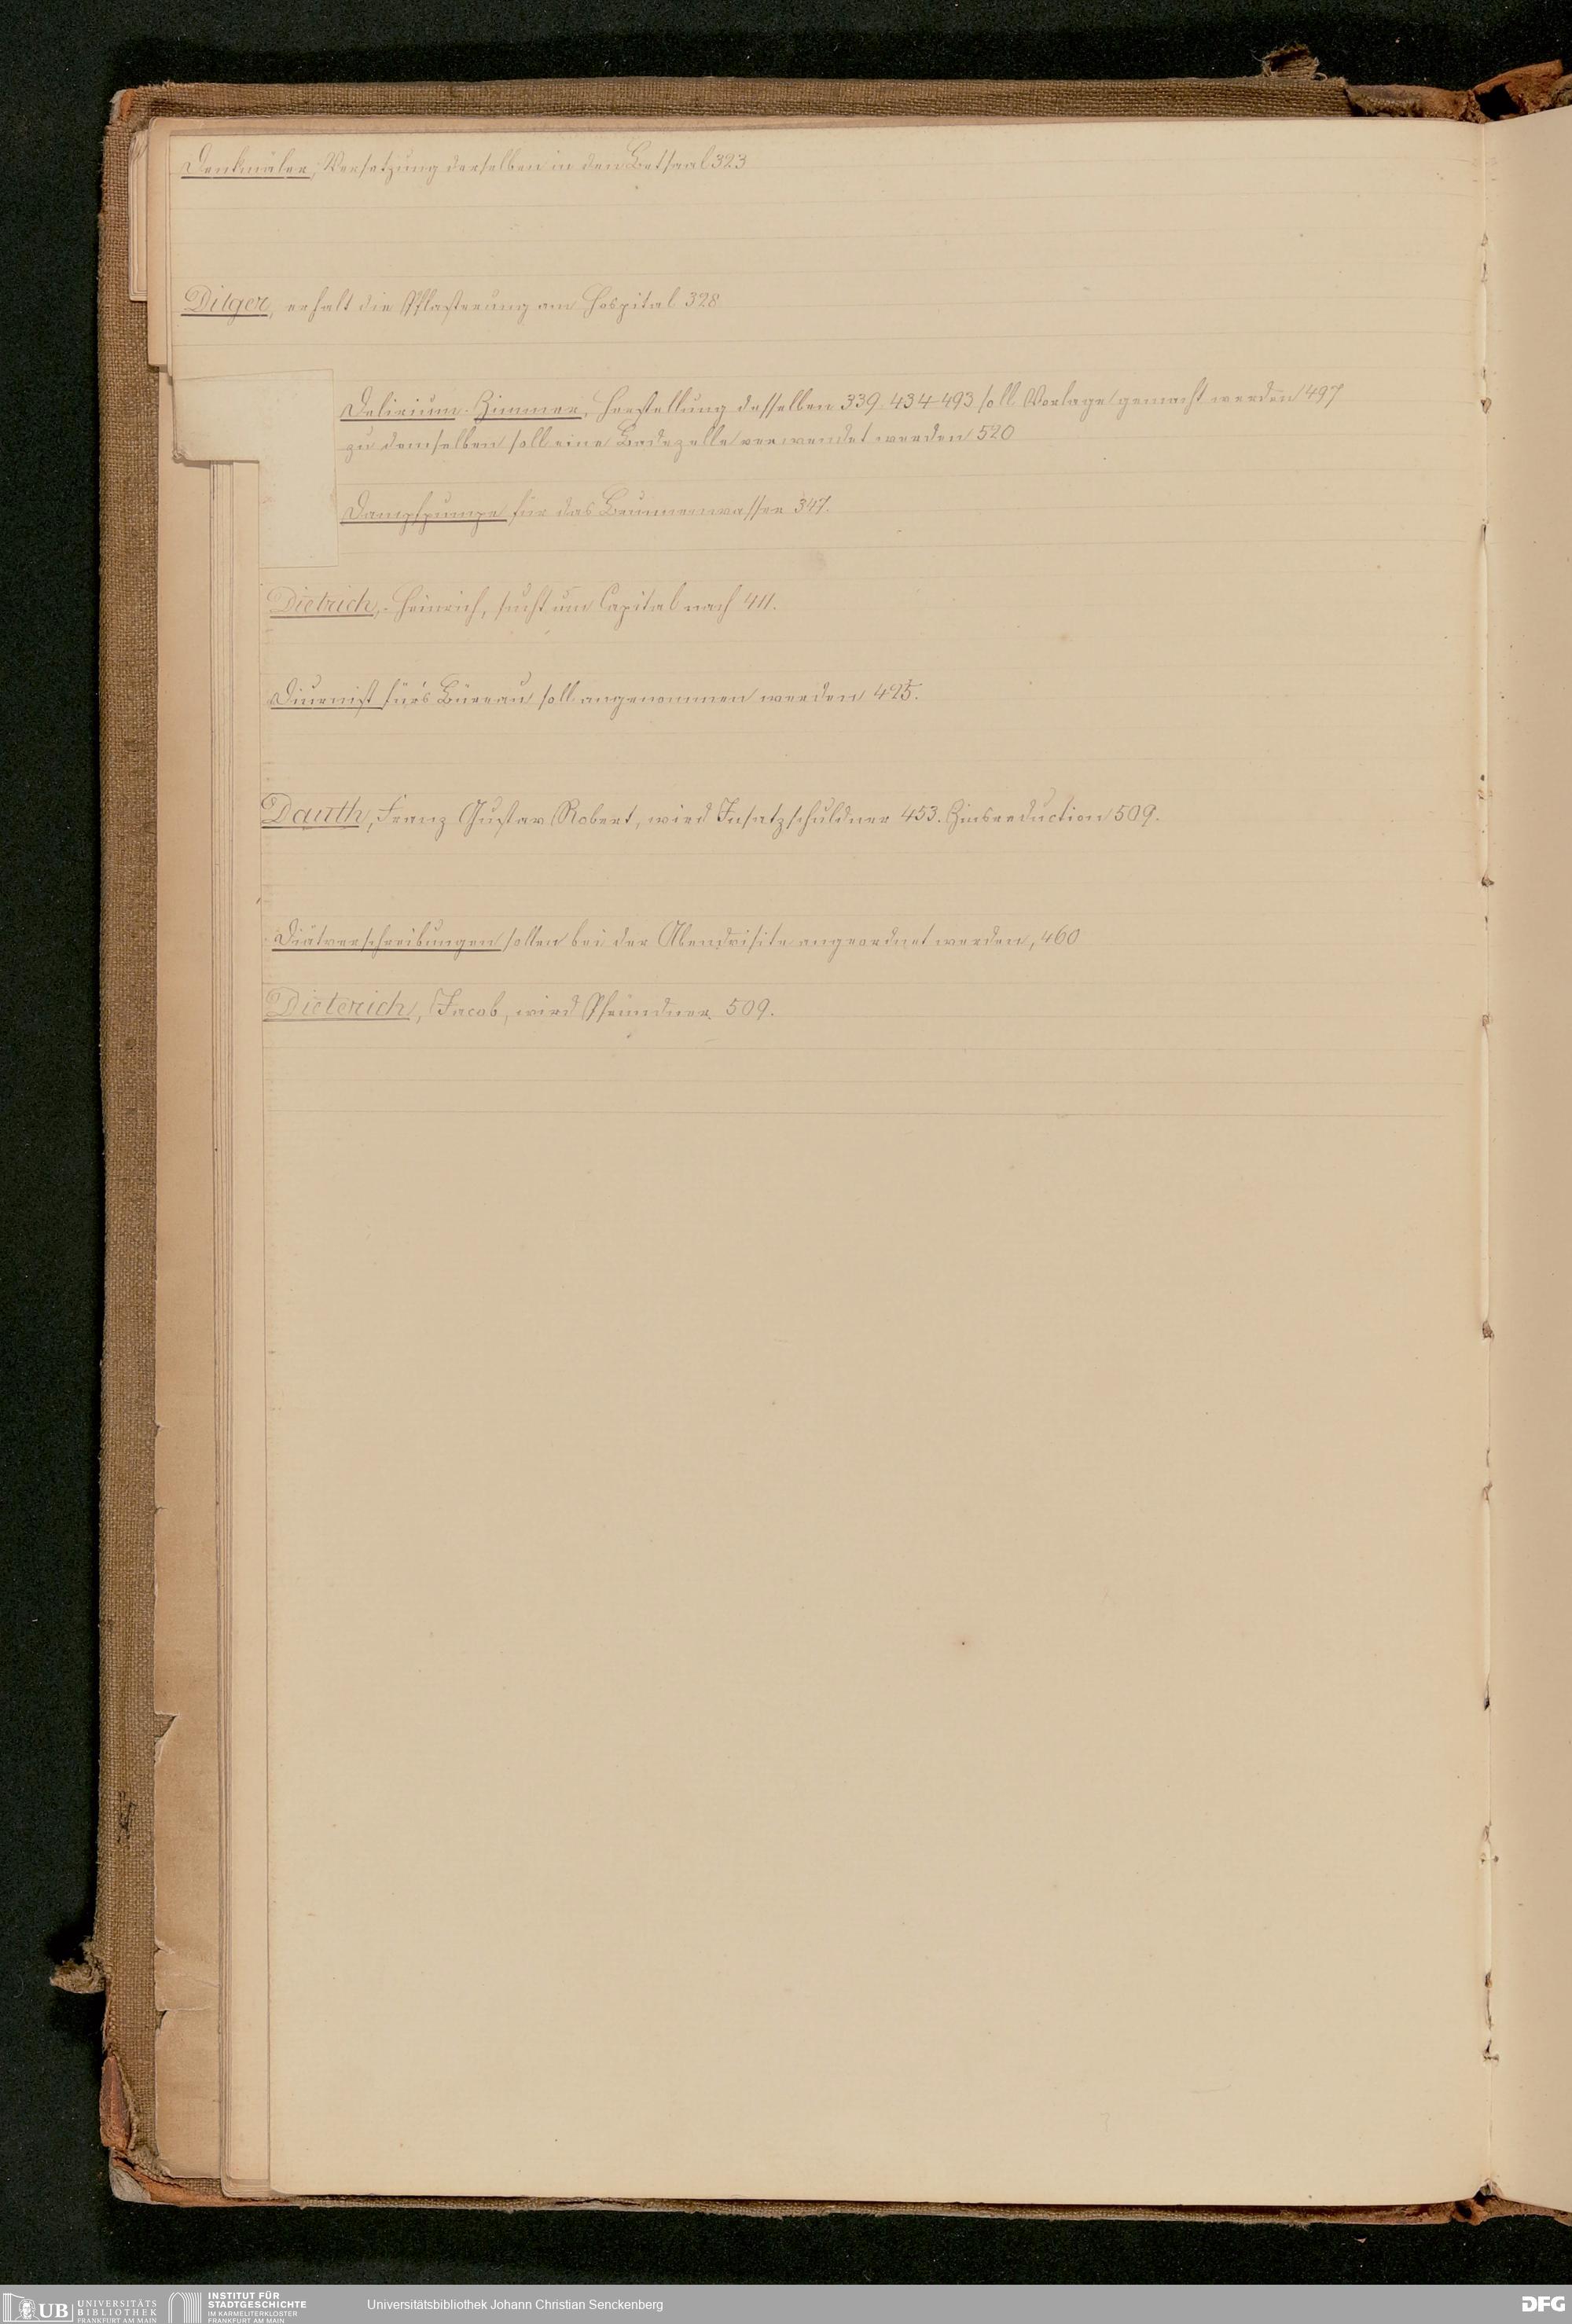 Denkmäler, Versetzung derselben in den Betsaal 323
Dilger, erhalt die Pflasterung am Hospital 328
Delirium-Zimmer, Herstellung desselben 339 434 493 soll Vorlage gemacht werden 497
zu demselben soll eine Badezelle verwendet werden 520
Dampfpumpe für das Brunnenwasser 347.
Dietrich, Heinrich, sucht um Capital nach 411.
Diurnist für's Büreau soll angenommen werden 425.
Dauth, Franz Gustav Robert, wird Insatzschuldner 453. Zinsreduction 509.
Diätverschreibungen sollen bei der Abendvisite angeordnet werden, 460
Dieterich, Jacob, wird Pfründner 509.
UB UNIVERSITÄTS
BIBLIOTHEK
FRANKFURT AM MAIN
INSTITUT FÜR
STADTGESCHICHTE
IM KARMELITERKLOSTER
FRANKFURT AM MAIN
Universitätsbibliothek Johann Christian Senckenberg
DFG